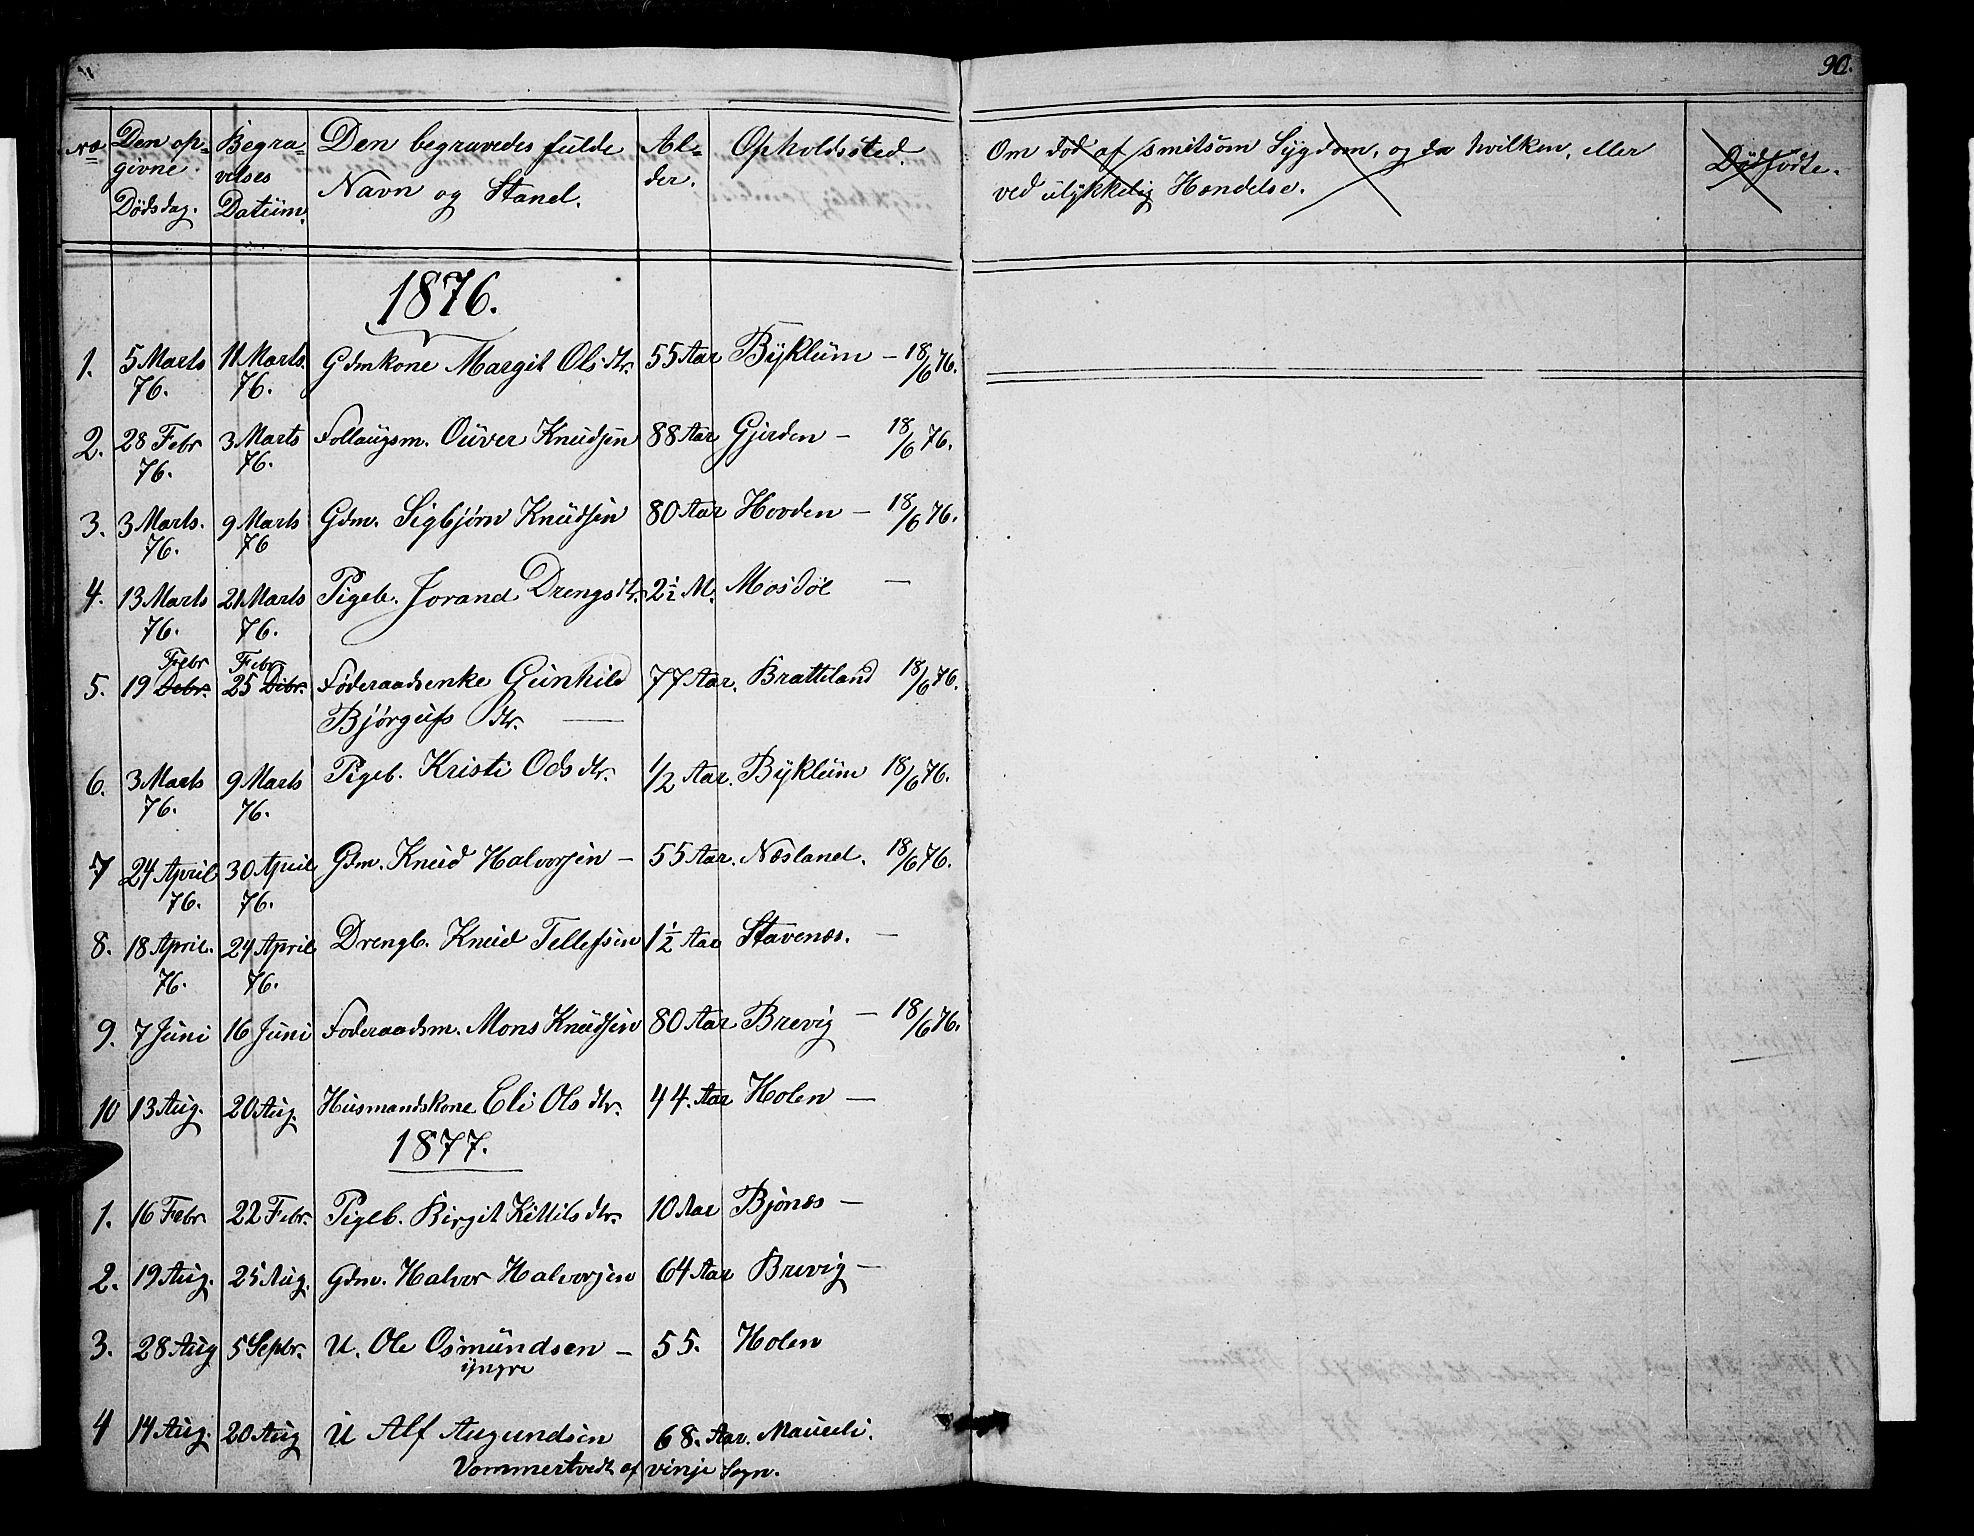 90.
No Den op- Begra- Den begravedes fulde Al- Opholdssted. Om død af smitsom Sygdom, og da hvilken, eller Dødfødte.
givne velses Navn og Stand. der. ved ulykkelig Hændelse.
Dødsdag. Datum.
1876.
1. 5 Marts 11 Marts. Gdmkone Margit Olsdtr. 55 Aar Byklum — 18/6 76.
76. 76.
2. 28 Febr 3 Marts Follaugsm. Ouver Knudsen 88 Aar Gjerden — 18/6 76.
76. 76.
3. 3 Marts. 9 Marts Gdm. Sigbjørn Knudsen 80 Aar Hovden — 18/6 76.
76. 76
4. 13 Marts 21 Marts Pigeb. Jorand Drengsdtr. 2½ M. Mosdøl —
76. 76.
Febr Febr
5. 19 Debr. 25 Dibr. Føderaadsenke Gunhild 77 Aar. Bratteland 18/6 76.
Bjørgufs dtr. —
6. 3 Marts 9 Marts Pigeb. Kristi Odsdtr. 1/2 Aar. Byklum 18/6 76.
76. 76.
7 24 April 30 April Gdm. Knud Halvorsen — 55 Aar. Næsland. 18/6 76.
76. 76.
8. 18 April. 24 April Drengb. Knud Tellefsen 1½ Aar Stavenæs. —
76. 76.
9. 7 Juni 16 Juni Foderaadsm. Mons Knudsen 80 Aar Brevig — 18/6 76.
10 13 Aug. 20 Aug. Husmandskone Eli Olsdtr. 44. Aar Holen —
1877.
1. 16 Febr 22 Febr. Pigeb. Birgit Kittilsdtr. 10 Aar Bjønæs —
2. 19 Aug. 25 Aug. Gdm. Halvor Halvorsen 64 Aar Brevig —
3. 28 Aug 5 Septbr. U. Ole Osmundsen — 55. Holen
yngre
4 14 Aug. 20 Aug U Alf Augundsen 68. Aar.
Vommertvedt af vinje Sogn.